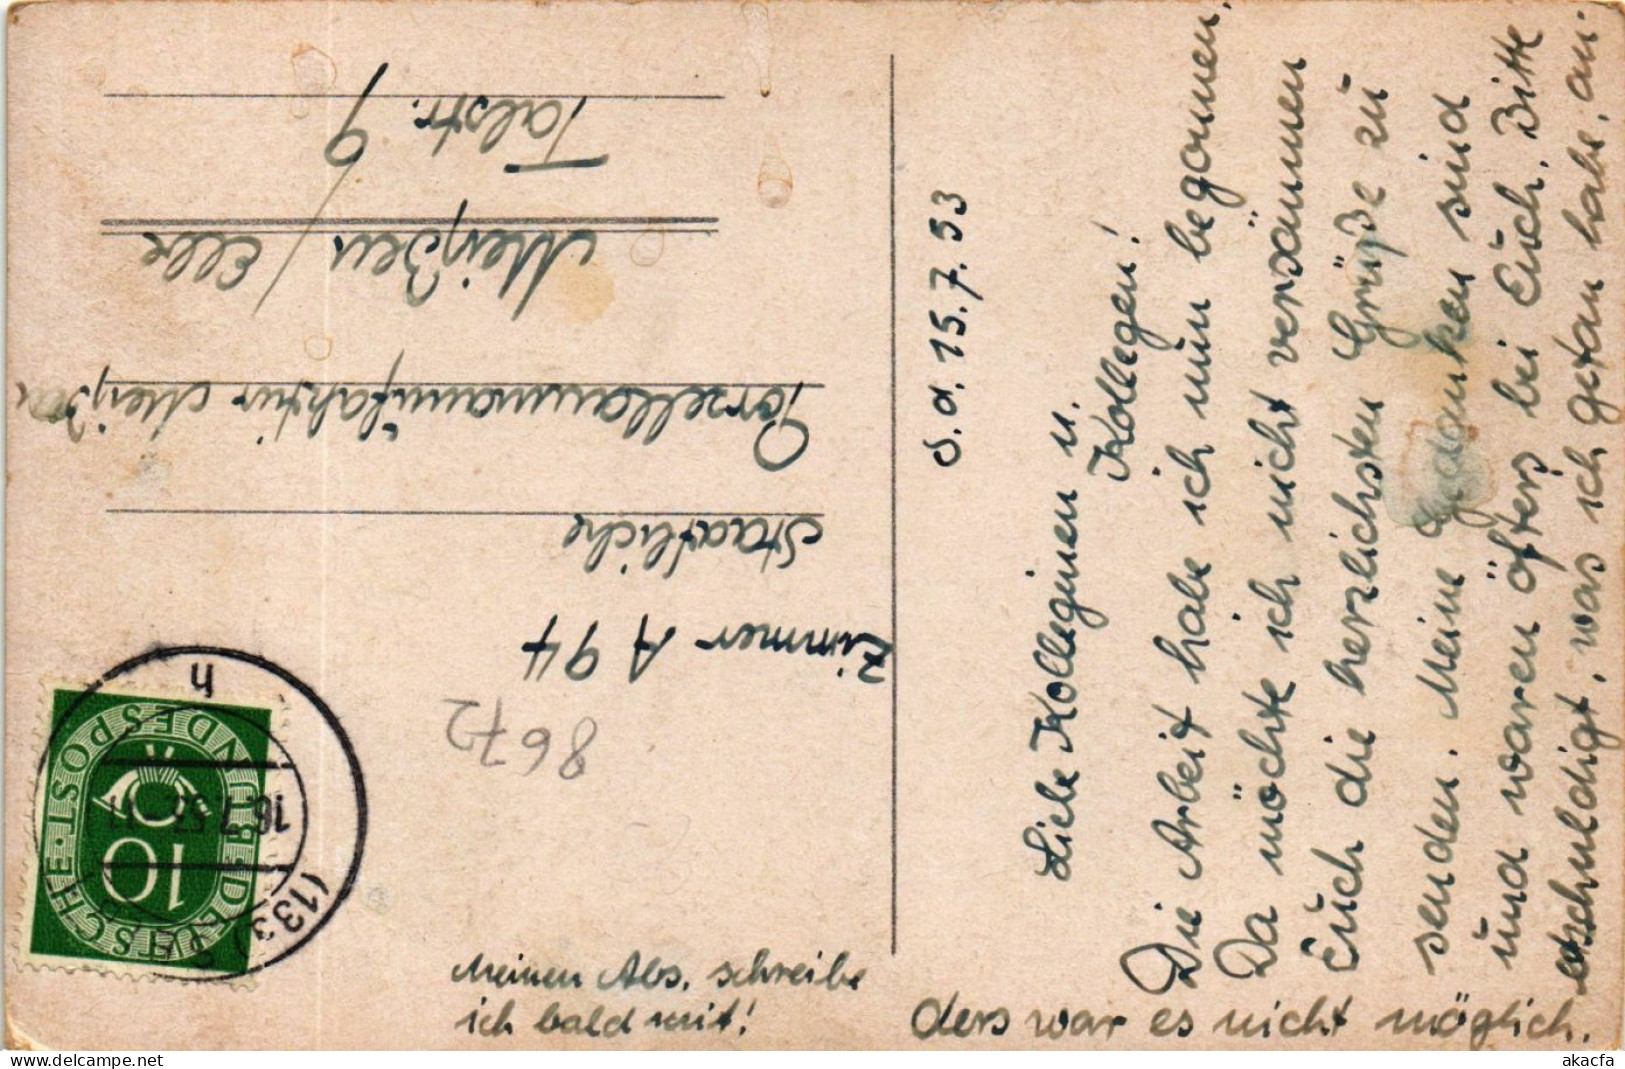 S. d. 15.7.53
Liebe Kolleginen u.
Kollegen!
Die Arbeit habe ich nun begonnen.
Da möchte ich nicht versäumen
Euch die herzlichsten Grüße zu
senden. Meine Gedanken sind
und waren öfters bei Euch. Bitte
entschuldigt, was ich getan habe, an-
ders war es nicht möglich.
Meinen Abs. schreibe
ich bald mit!
Zimmer A 94
Staatliche
Porzellanmanufaktur Meißen
Meißen / Elbe
Talstr. 9
8672
DEUTSCHE BUNDESPOST
10
16.7.53
h
akpool.co.uk
akacfa